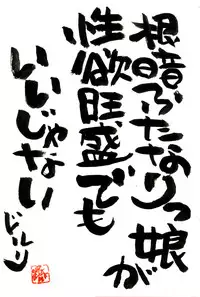 根暗ふたなりっ娘が
性欲旺盛でも
いいじゃない
どルり